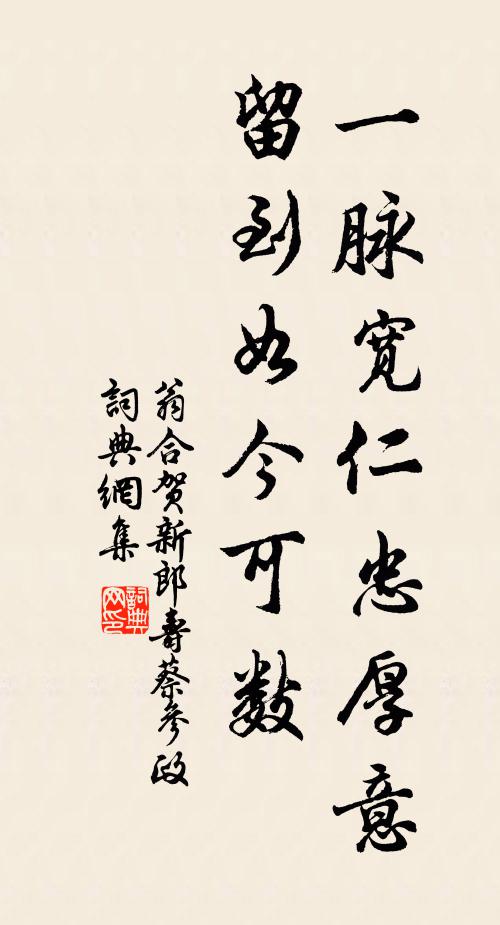 一脉寬仁忠厚意
留到如今可數
翁合贺新郎壽蔡參政
詞典網集
詞典网印